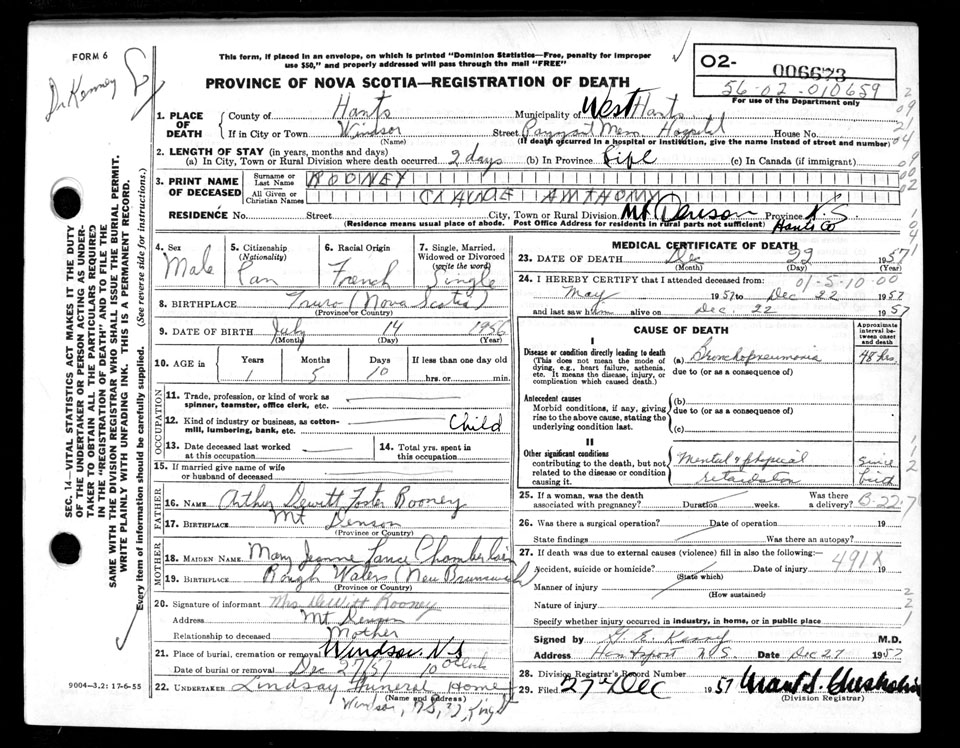 FORM 6
This form, if placed in an envelope, on which is printed "Dominion Statistics—Free, penalty for improper
use $50," and properly addressed will pass through the mail "FREE"
PROVINCE OF NOVA SCOTIA—REGISTRATION OF DEATH
02-
006673
56-02-010659
For use of the Department only
Dr Kenney
1. PLACE OF DEATH
County of Hants Municipality of West Hants
If in City or Town Windsor Street Payzant Mem. Hospital House No.
(Name) (If death occurred in a hospital or institution, give the name instead of street and number)
2. LENGTH OF STAY (in years, months and days)
(a) In City, Town or Rural Division where death occurred 2 days (b) In Province Life (c) In Canada (if immigrant)
3. PRINT NAME OF DECEASED
Surname or Last Name ROONEY
All Given or Christian Names CLAUDE ANTHONY
RESIDENCE No. Street City, Town or Rural Division Mt Denson Province N.S
(Residence means usual place of abode. Post Office Address for residents in rural parts not sufficient) Hants Co
4. Sex Male
5. Citizenship (Nationality) Can
6. Racial Origin French
7. Single, Married, Widowed or Divorced (write the word) Single
8. BIRTHPLACE Truro (Nova Scotia)
(Province or Country)
9. DATE OF BIRTH July 14 1956
(Month) (Day) (Year)
10. AGE in Years 1 Months 5 Days 10 If less than one day old hrs. or min.
OCCUPATION
11. Trade, profession, or kind of work as spinner, teamster, office clerk, etc.
12. Kind of industry or business, as cotton-mill, lumbering, bank, etc. Child
13. Date deceased last worked at this occupation
14. Total yrs. spent in this occupation
15. If married give name of wife or husband of deceased
FATHER
16. NAME Arthur Dewitt Foster Rooney
17. BIRTHPLACE Mt Denson
(Province or Country)
MOTHER
18. MAIDEN NAME Mary Jeanne Chamberlain
19. BIRTHPLACE Rough Waters (New Brunswick)
(Province or Country)
20. Signature of informant Mrs DeWitt Rooney
Address Mt Denson
Relationship to deceased Mother
21. Place of burial, cremation or removal Windsor, N.S
Date of burial or removal Dec 27/57 10 O'clock
22. UNDERTAKER Lindsay Funeral Home
(Name and Address)
Windsor, N.S, King St
9004-3.2: 17-6-55
SEC. 14—VITAL STATISTICS ACT MAKES IT THE DUTY OF THE UNDERTAKER OR PERSON ACTING AS UNDERTAKER TO OBTAIN ALL THE PARTICULARS REQUIRED IN THE "REGISTRATION OF DEATH" AND TO FILE THE SAME WITH THE DIVISION REGISTRAR WHO SHALL ISSUE THE BURIAL PERMIT.
WRITE PLAINLY WITH UNFADING INK. THIS IS A PERMANENT RECORD.
Every item of information should be carefully supplied. (See reverse side for instructions.)
MEDICAL CERTIFICATE OF DEATH
23. DATE OF DEATH Dec 1957
(Month) (Day) (Year)
01-5-10-00
24. I HEREBY CERTIFY that I attended deceased from:
May 1957 to Dec 22 1957
and last saw him alive on Dec. 22 1957
CAUSE OF DEATH
Approximate interval between onset and death
I
Disease or condition directly leading to death (a) Bronchopneumonia 48 hrs.
(This does not mean the mode of dying, e.g., heart failure, asthenia, etc. It means the disease, injury, or complication which caused death.)
due to (or as a consequence of)
Antecedent causes
Morbid conditions, if any, giving rise to the above cause, stating the underlying condition last.
(b)
due to (or as a consequence of)
(c)
II
Other significant conditions contributing to the death, but not related to the disease or condition causing it.
Mental & physical retardation since birth
25. If a woman, was the death associated with pregnancy? Duration weeks. Was there a delivery?
B-22-7
26. Was there a surgical operation? Date of operation 19
State findings Was there an autopsy?
27. If death was due to external causes (violence) fill in also the following:—
491X
Accident, suicide or homicide? Date of injury 19
(State which)
Manner of injury
(How sustained)
Nature of injury
Specify whether injury occurred in industry, in home, or in public place
Signed by M.D.
Address Hantsport N.S. Date Dec 27 1957
28. Division Registrar's Record Number
29. Filed 27th Dec 1957 Grant S. Chisholm
(Division Registrar)